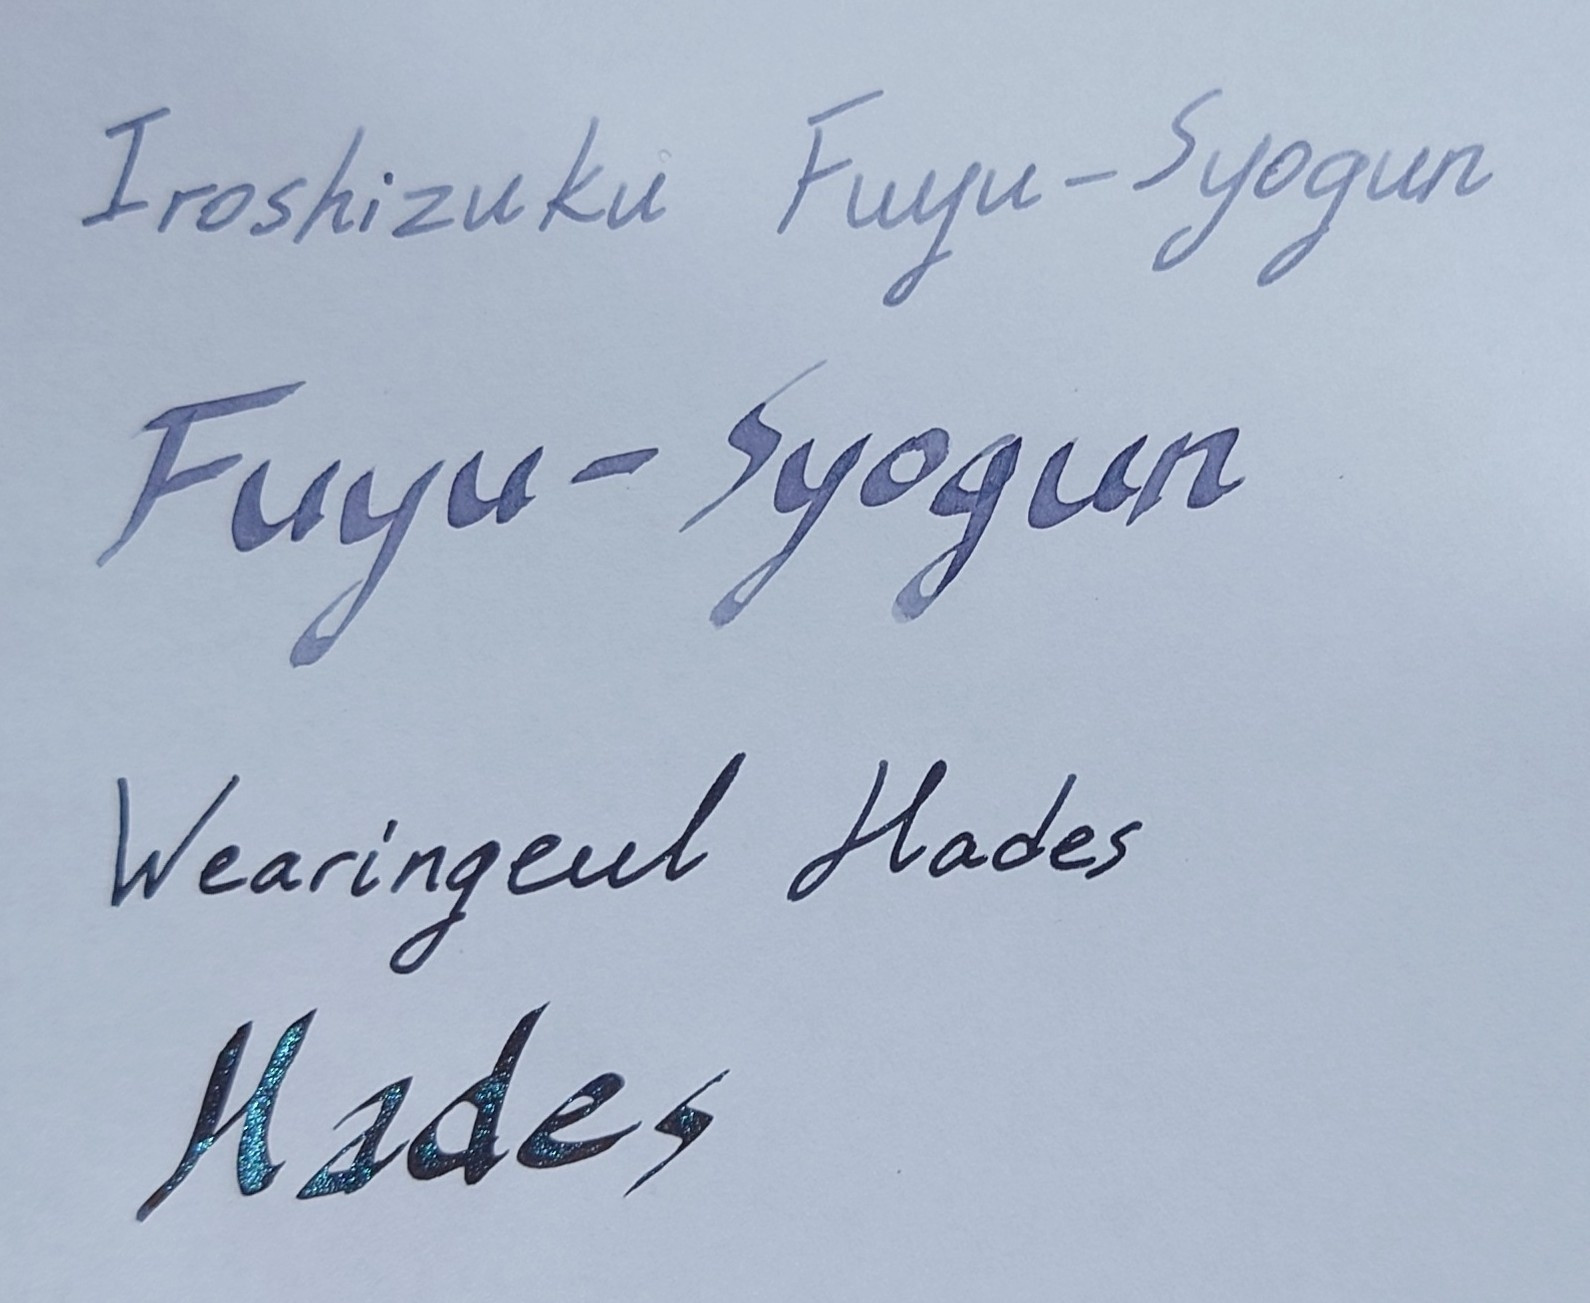 Iroshizuku Fuyu-Syogun
Fuyu-Syogun
Wearingeul Hades
Hades